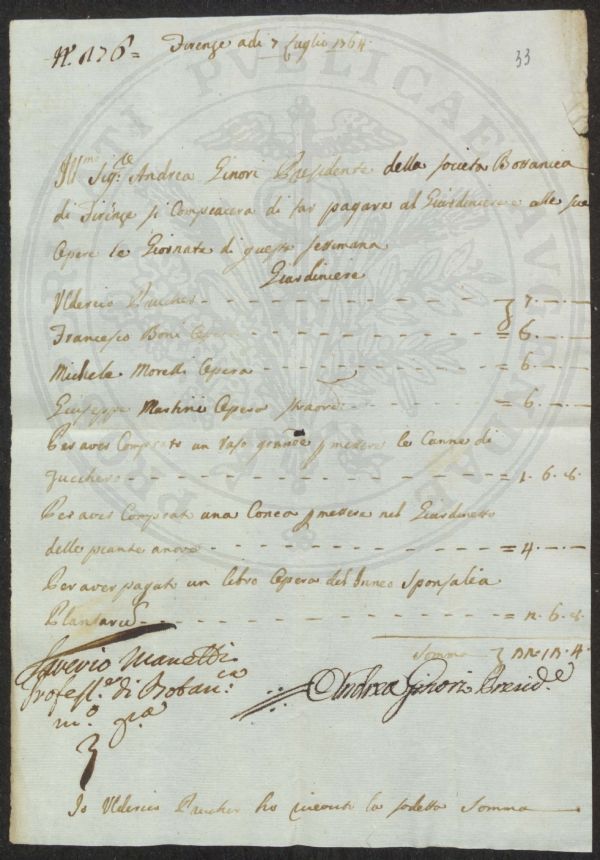 N. 176=
Firenze adi 7 Luglio 1764
33
Ill.mo Sig.re Andrea Ginori Presidente della società Bottanica
di Firenze si compiacera di far pagare al Giardiniere e alle sue
Opere le Giornate di questa settimana
Giardiniere
Ulderico Prucher - - - 7 . — . —
Francesco Boni Opera - - - = 6 . — . —
Michele Morelli Opera - - - = 6 . — . —
Giuseppe Martini Opera straord. - - - = 6 . — . —
Per aver Comprato un Vaso grande p mettere le Canne di
Zucchero - - - = 1 . 6 . 8 .
Per aver Comprat una Conca p mettere nel Giardinetto
delle piante - - - = 4 . — . —
Per aver pagat un libro Opera del Sponsalia
Plantarum - - - 6 . 8 .
Somma
Saverio Manetti
Profess.e di Botan.ca
m.o p.a
Andrea Ginori Presid.e
Io Ulderico Prucher ho riceuto la sodetta Somma
PUBLICAE